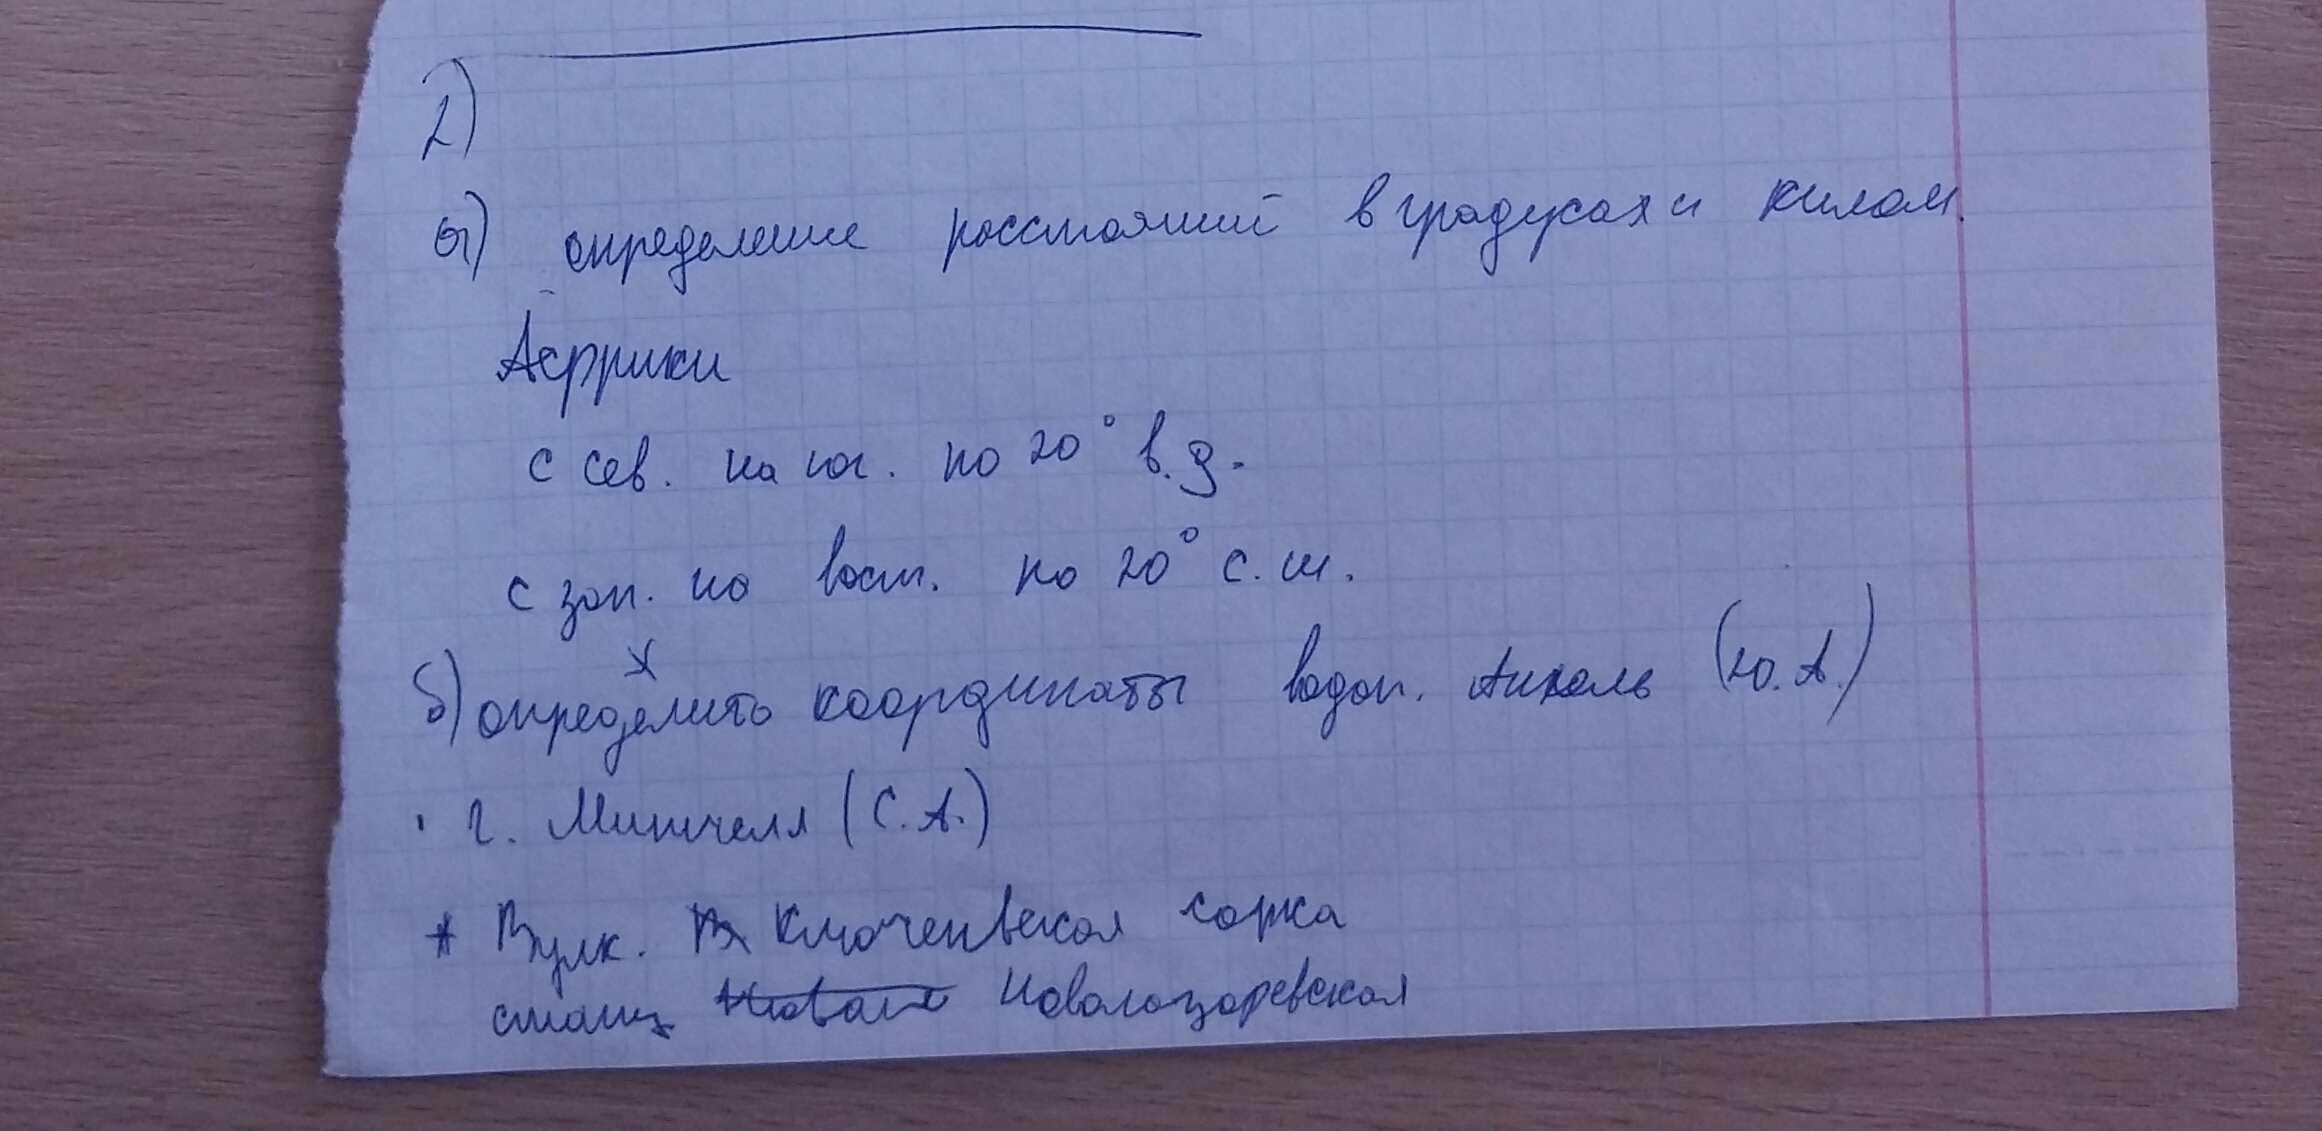 2)
а) определение расстояний в градусах и килом.
Африки
с сев. на юг. по 20° в.д.
с зап. на вост. по 20° с.ш.
б) определить координаты водоп. Анхель (Ю.А.)
г. Митчелл (С.А.)
* Вулк. Ключенвская сопка
станц Новолазаревская